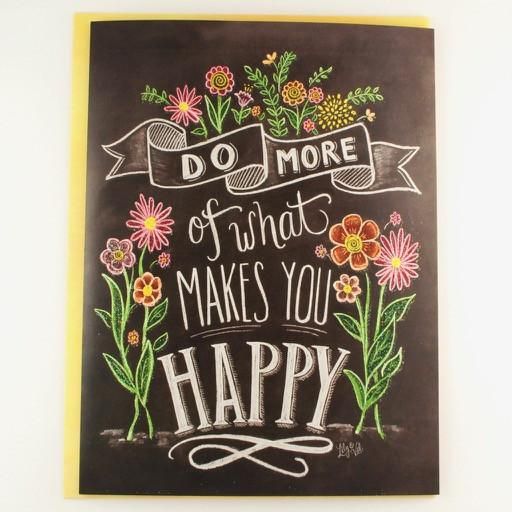 DO MORE
of what
MAKES YOU
HAPPY
Lily & Val